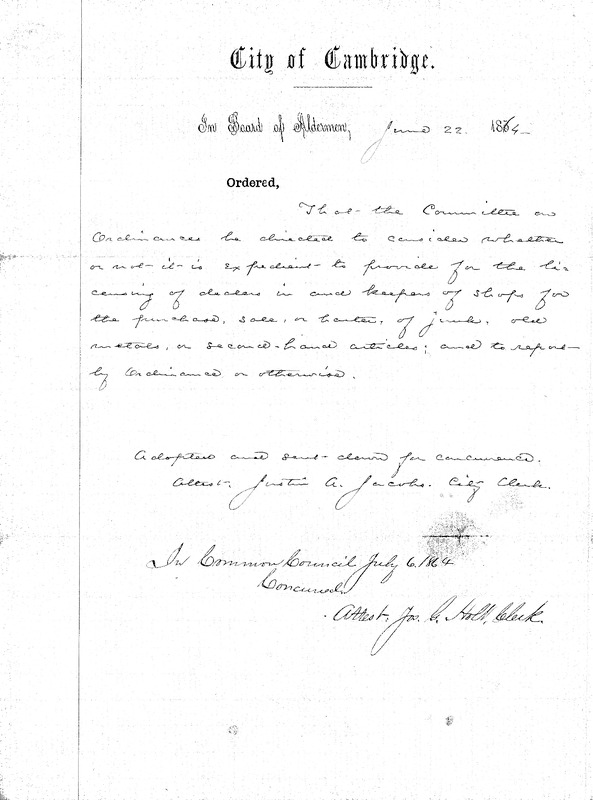 City of Cambridge.
In Board of Aldermen, June 22. 1864
Ordered,
That the Committee on
Ordinances be directed to consider whether
or not it is expedient to provide for the li=
censing of dealers in and keepers of shops for
the purchase, sale, or barter, of junk, old
metals, or second-hand articles; and to report
by Ordinance or otherwise.
Adopted and sent down for concurrence.
Attest, Justin A. Jacobs. City Clerk.
In Common Council July 6. 1864
Concurred.
Attest. Jos. G. Holt, Clerk.